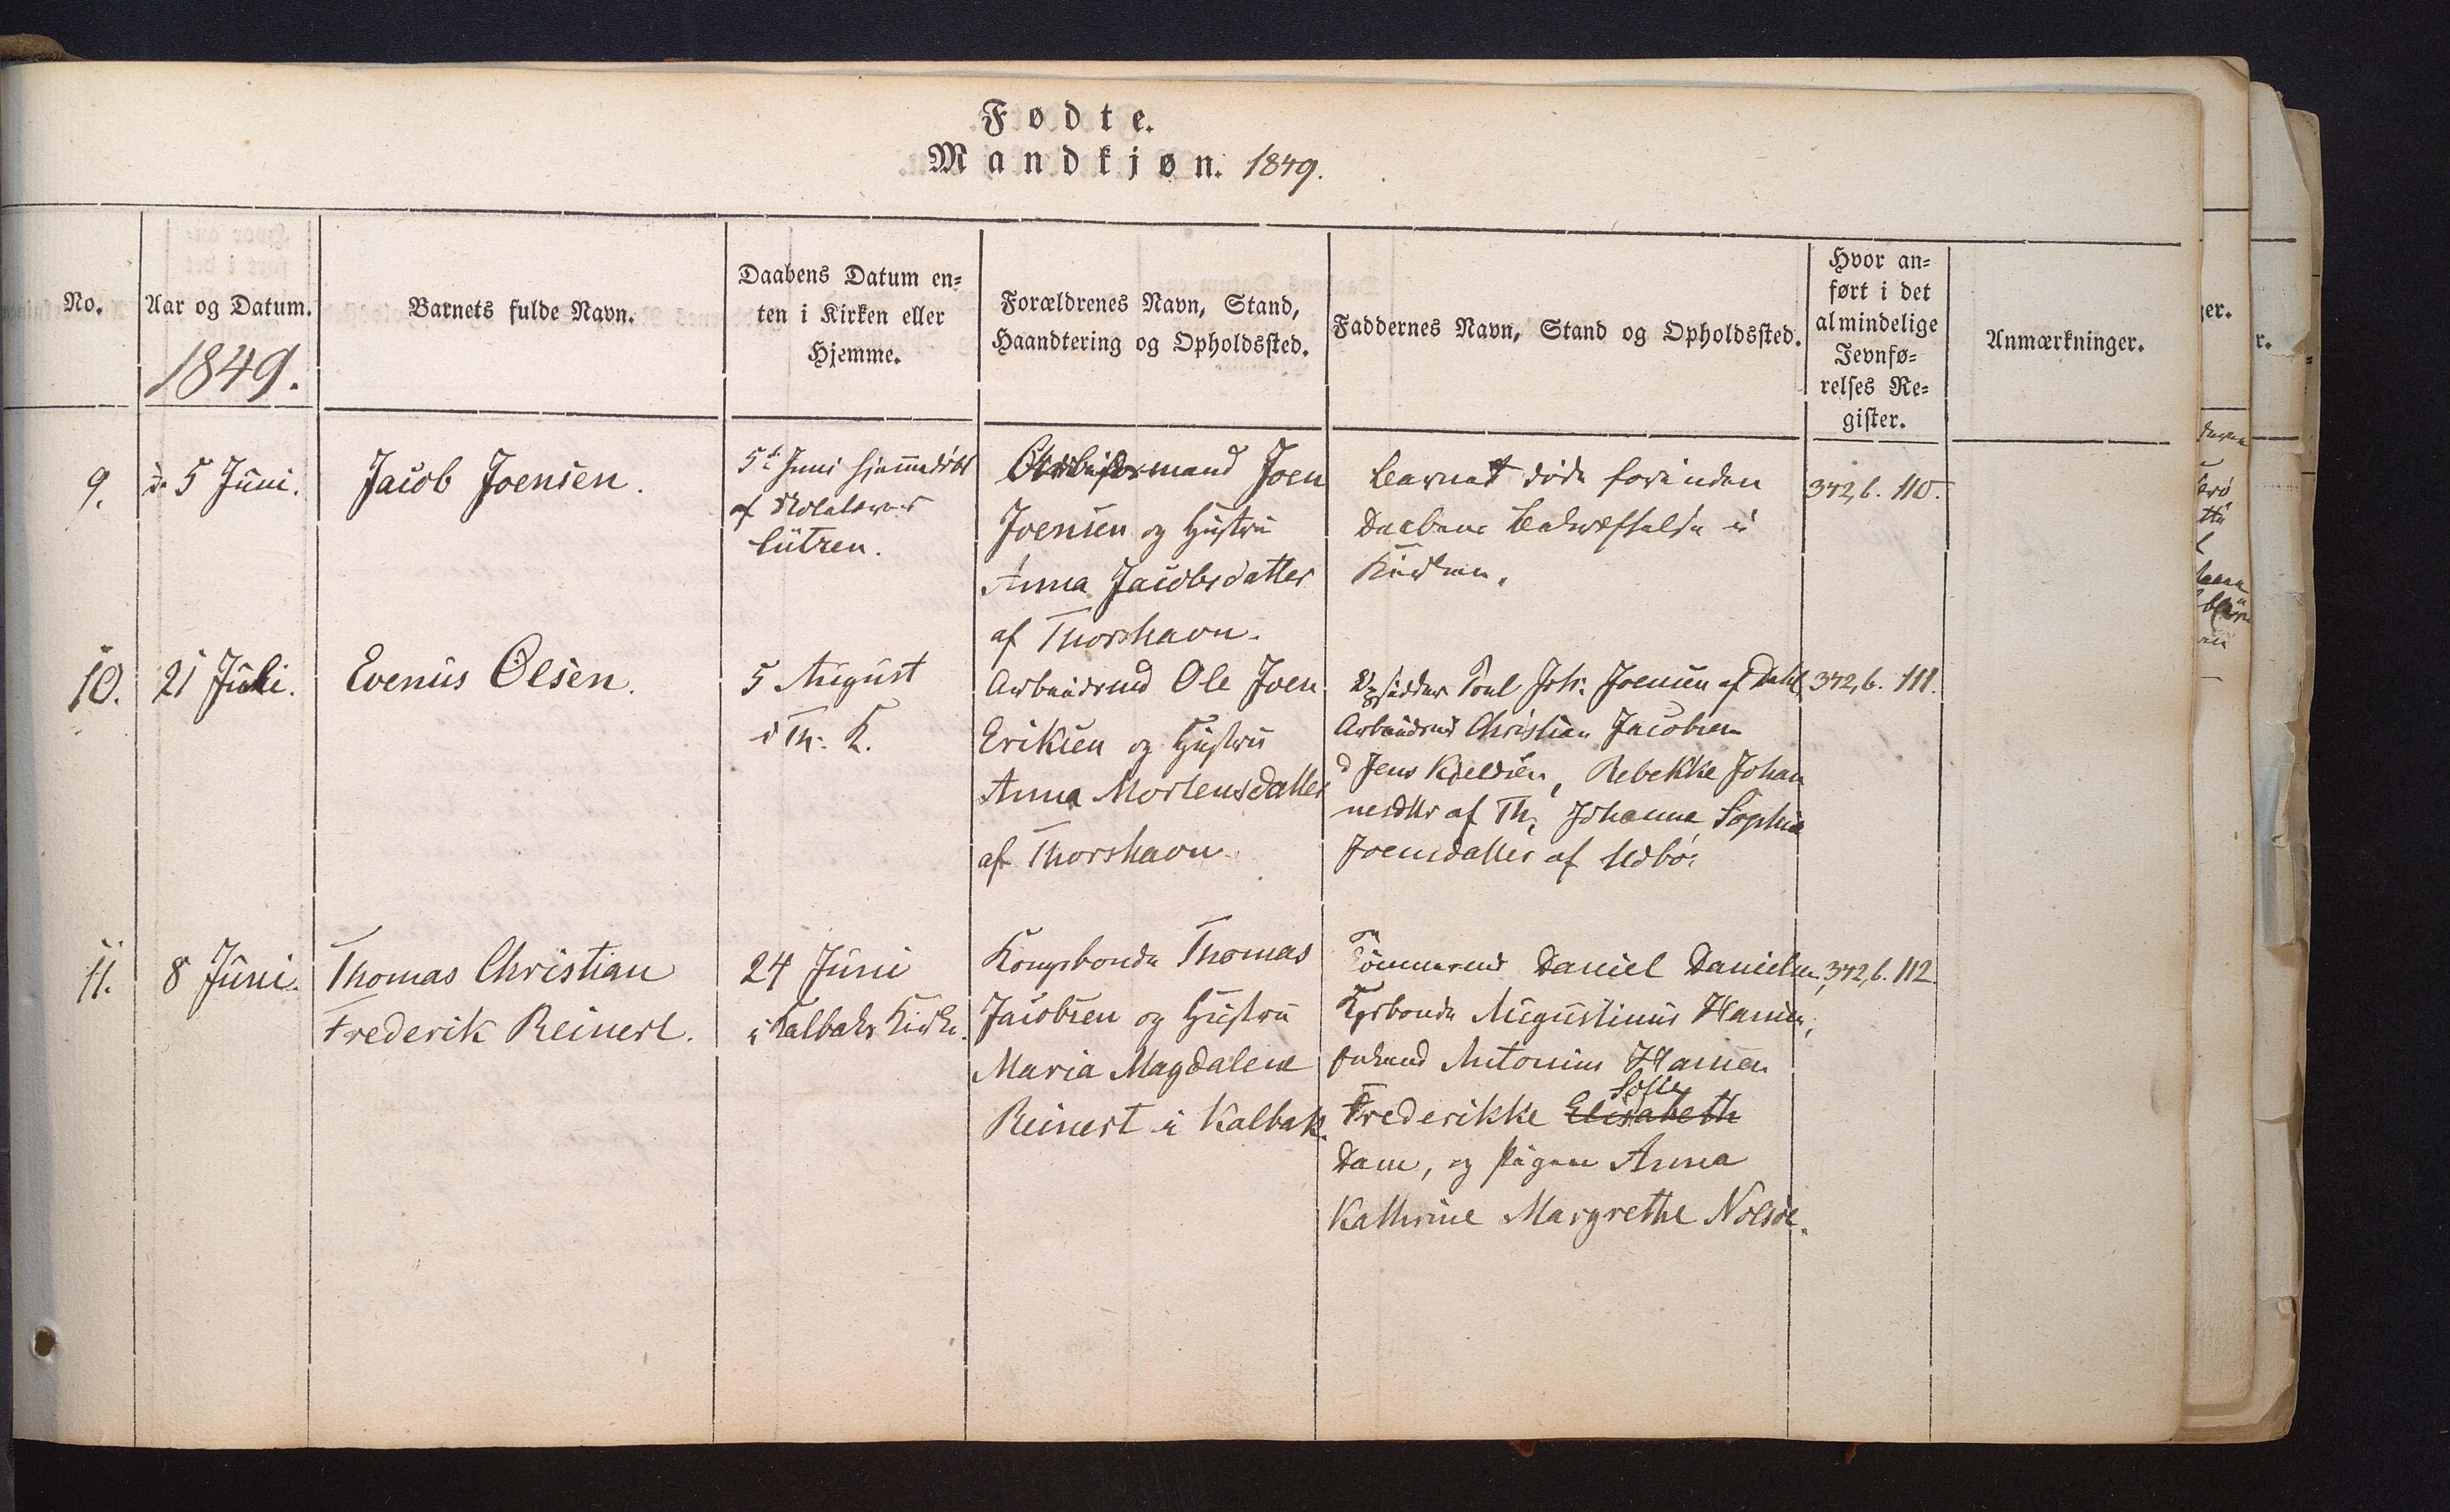 Fødte.
Mandkjøn. 1849.
No.
Aar og Datum.
1849.
Barnets fulde Navn.
Daabens Datum en=
ten i Kirken eller
Hjemme.
Forældrenes Navn, Stand,
Haandtering og Opholdssted.
Faddernes Navn, Stand og Opholdssted.
Hvor an=
ført i det
almindelige
Jevnfø=
relses Re=
gister.
Anmærkninger.
9.
5 Juni.
Jacob Joensen.
5t Juni hjemmedöbt
af
Lützen.
Arbeidsmand Joen
Joensen og Hustru
Anna Jacobsdatter
af Thorshavn.
Barnet döde forinden
Daabens Bekræftelse i
Kirken.
342, b. 110.
10.
21 Juli.
Evenus Olsen.
5 August
i Th. K.
Arbeidsmd Ole Joen
Eriksen og Hustru
Anna Mortensdatter
af Thorshavn.
Opsidder Poul Joh: Joensen af Dahl
Arbeidsmd Christian Jacobsen
d Jens Kjeldsen, Rebekke Johan
nesdttr af Th, Johanne Sophie
Joensdatter af
342, b. 111.
11.
8 Juni.
Thomas Christian
Frederik Reinert.
24 Juni
i Kalbaks Kirke.
Kongsbonde Thomas
Jacobsen og Hustru
Maria Magdalene
Reinert i Kalbak.
Tömmermd Daniel Danielsen,
Kgsbonde Augustinus Hansen,
Enkemd Antonius Hansen
Frederikke Elisabeth
Sofie
Dam, og Pigen Anna
Kathrine Margrethe Nolsöe.
342, b. 112.